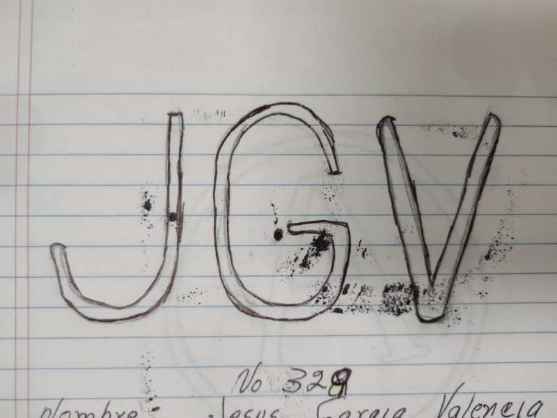 JGV
No 329
Nombre: Jesus Garcia Valencia